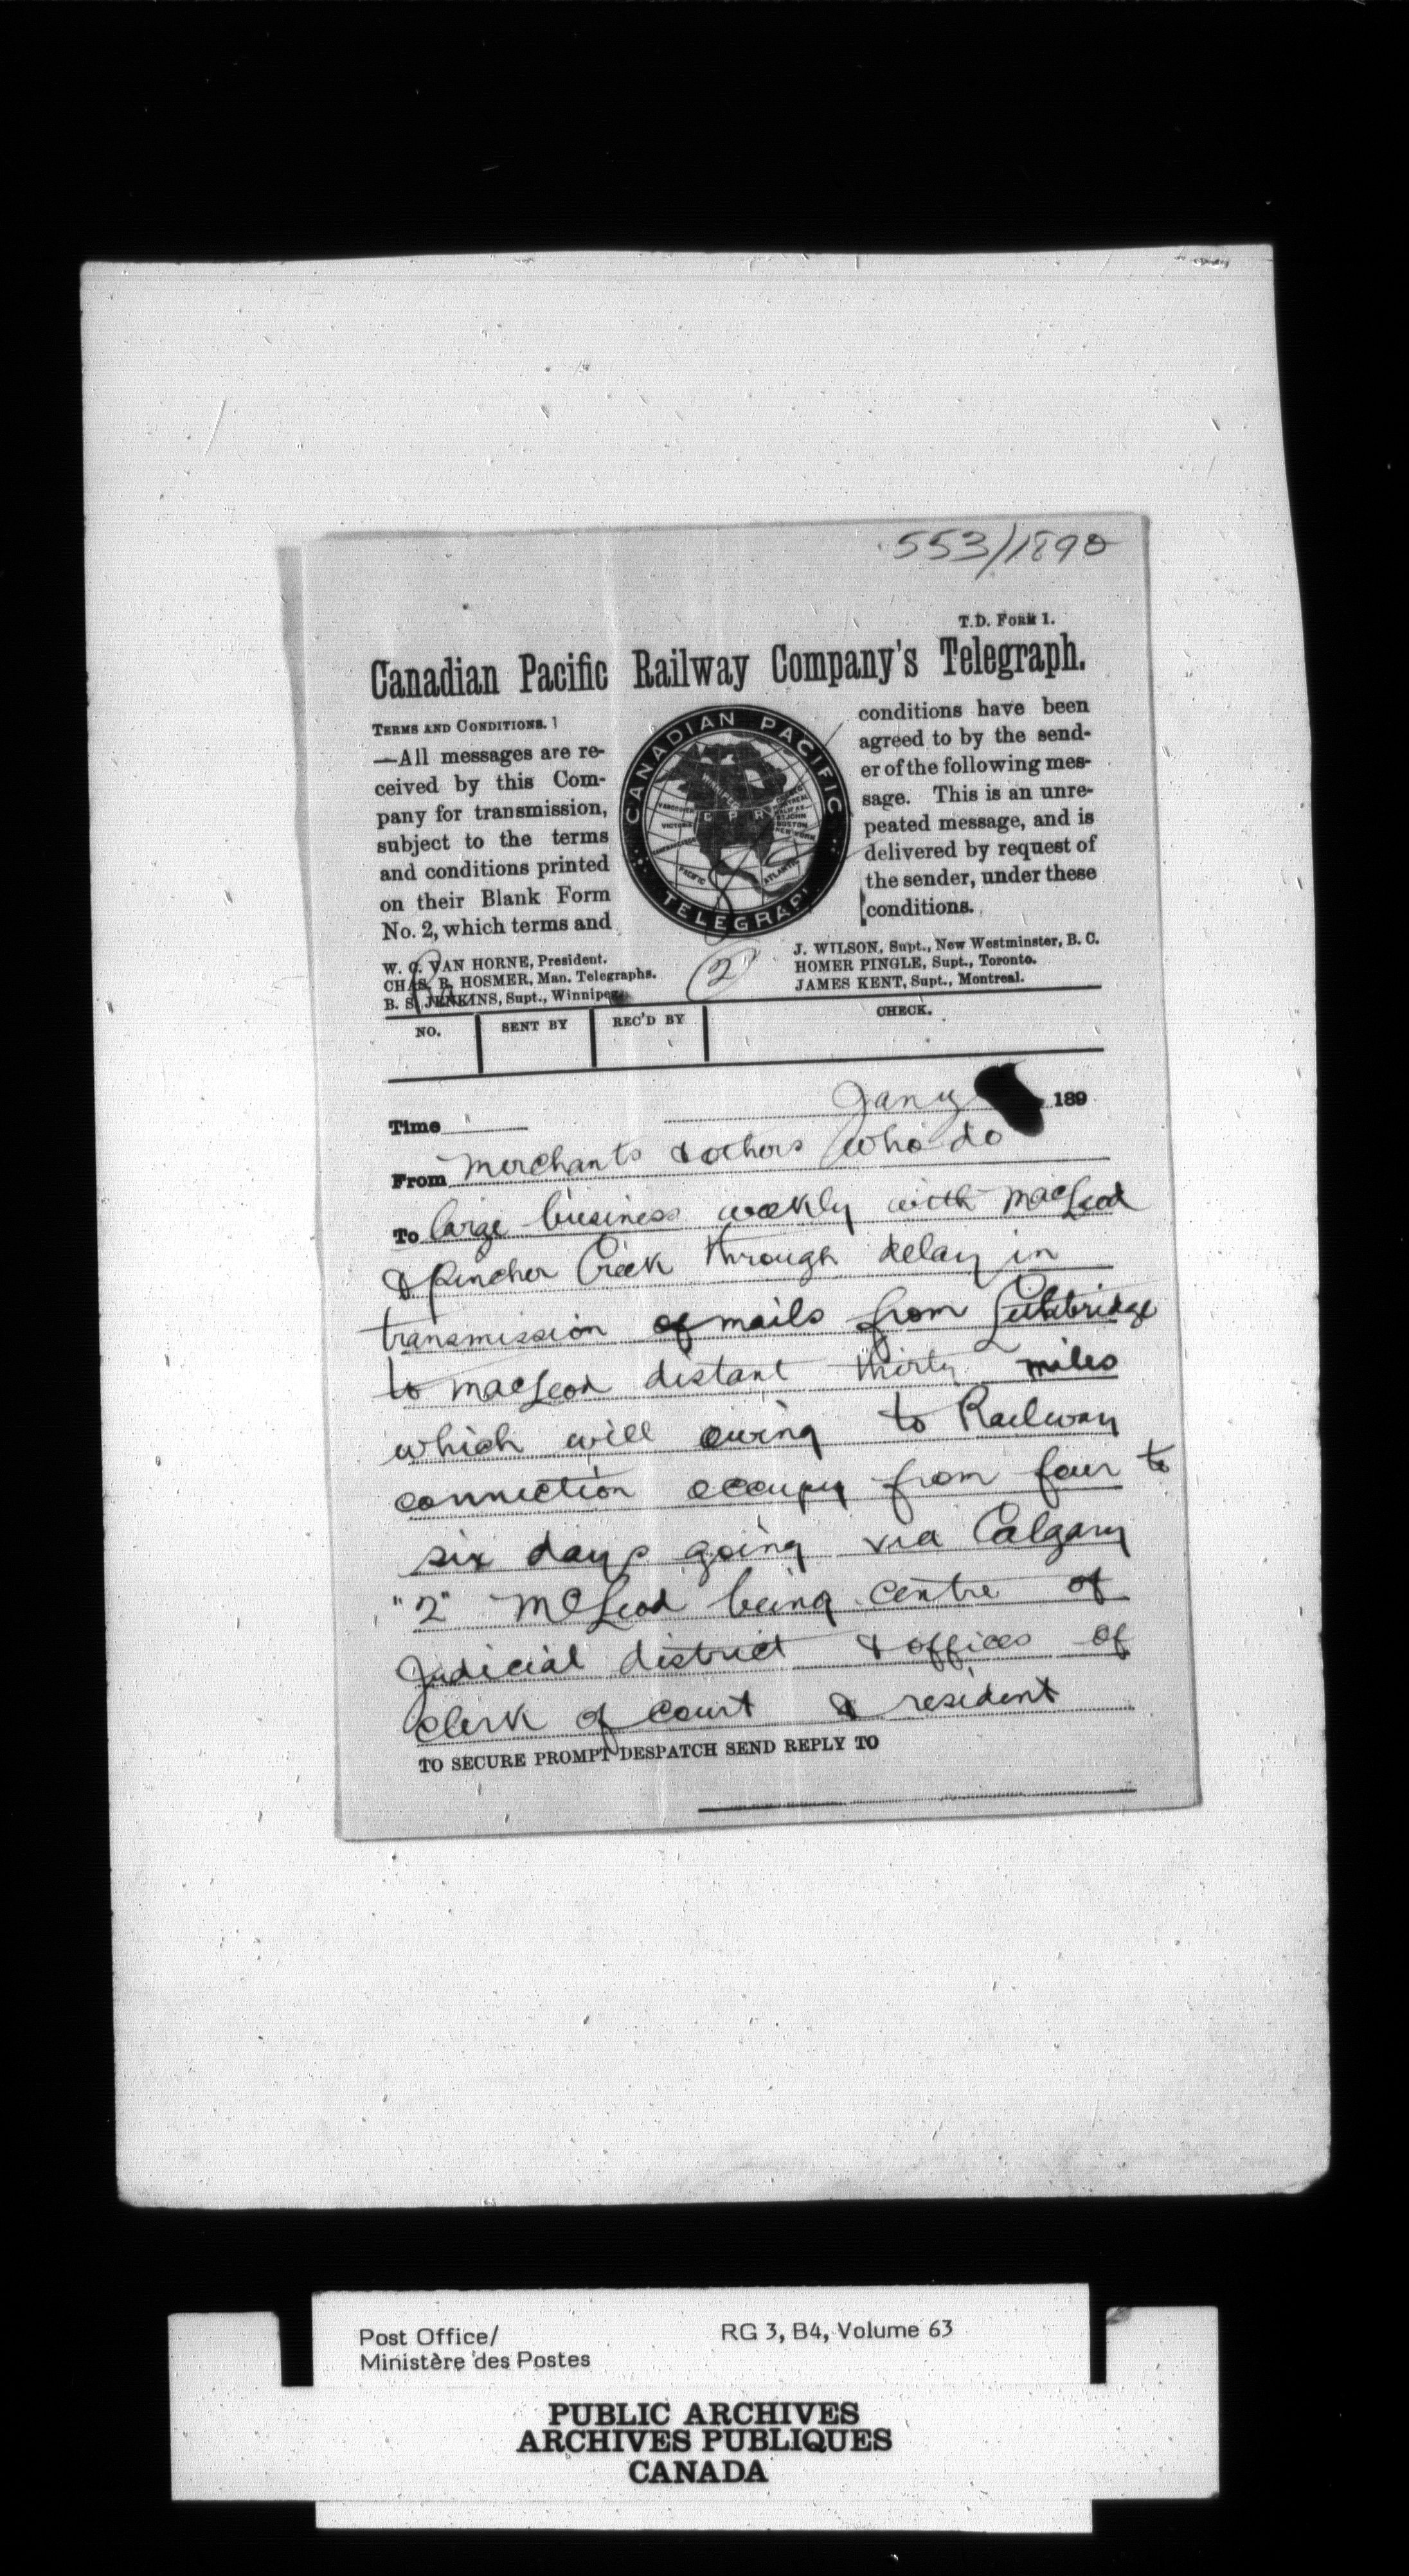 553/1890
T.D. Form 1.
Canadian Pacific Railway Company's Telegraph.
Terms and Conditions.
—All messages are re-
ceived by this Com-
pany for transmission,
subject to the terms
and conditions printed
on their Blank Form
No. 2, which terms and
CANADIAN PACIFIC
WINNIPEG
VANCOUVER
VICTORIA
C P R
QUEBEC
MONTREAL
HALIFAX
ST JOHN
BOSTON
NEW YORK
PACIFIC
ATLANTIC
TELEGRAPH
conditions have been
agreed to by the send-
er of the following mes-
sage. This is an unre-
peated message, and is
delivered by request of
the sender, under these
conditions.
W. C. VAN HORNE, President.
CHAS. R. HOSMER, Man. Telegraphs.
B. S. JENKINS, Supt., Winnipeg.
(2)
J. WILSON, Supt., New Westminster, B. C.
HOMER PINGLE, Supt., Toronto.
JAMES KENT, Supt., Montreal.
NO. SENT BY REC'D BY CHECK.
Time Jany 189
From merchants & others who do
To large business weekly with MacLeod
& Pincher Creek through delay in
transmission of mails from Lethbridge
to MacLeod distant thirty miles
which will owing to Railway
connection occupy from four to
six days going via Calgary
"2" McLeod being centre of
Judicial district & offices of
Clerk of Court & resident
TO SECURE PROMPT DESPATCH SEND REPLY TO
Post Office/
Ministère des Postes
RG 3, B4, Volume 63
PUBLIC ARCHIVES
ARCHIVES PUBLIQUES
CANADA